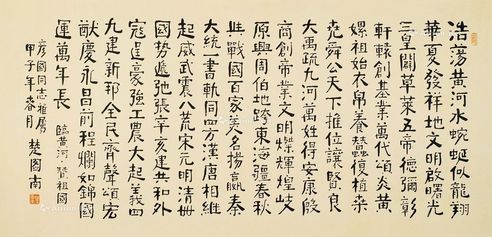 浩蕩黃河水蜿蜒似龍翔
華夏發祥地文明啟曙光
三皇闢草萊五帝德彌彰
軒轅創基業萬代頌炎黃
嫘祖始衣帛養蠶復植桑
堯舜公天下推位讓賢良
大禹疏九河萬姓得安康殷
商創帝業文明燦輝煌岐
原興周伯地跨東海疆春秋
與戰國百家美名揚嬴秦
大統一書軌同四方漢唐相繼
起威武震八荒宋元明清
國勢遞弛張辛亥建共和外
寇逞豪強工農大起義四
九建新邦全民齊聲頌宏
猷慶永昌前程爛如錦國
運萬年長 臨黃河 祖國
彥國同志雅屬
甲子年春月 楚圖南